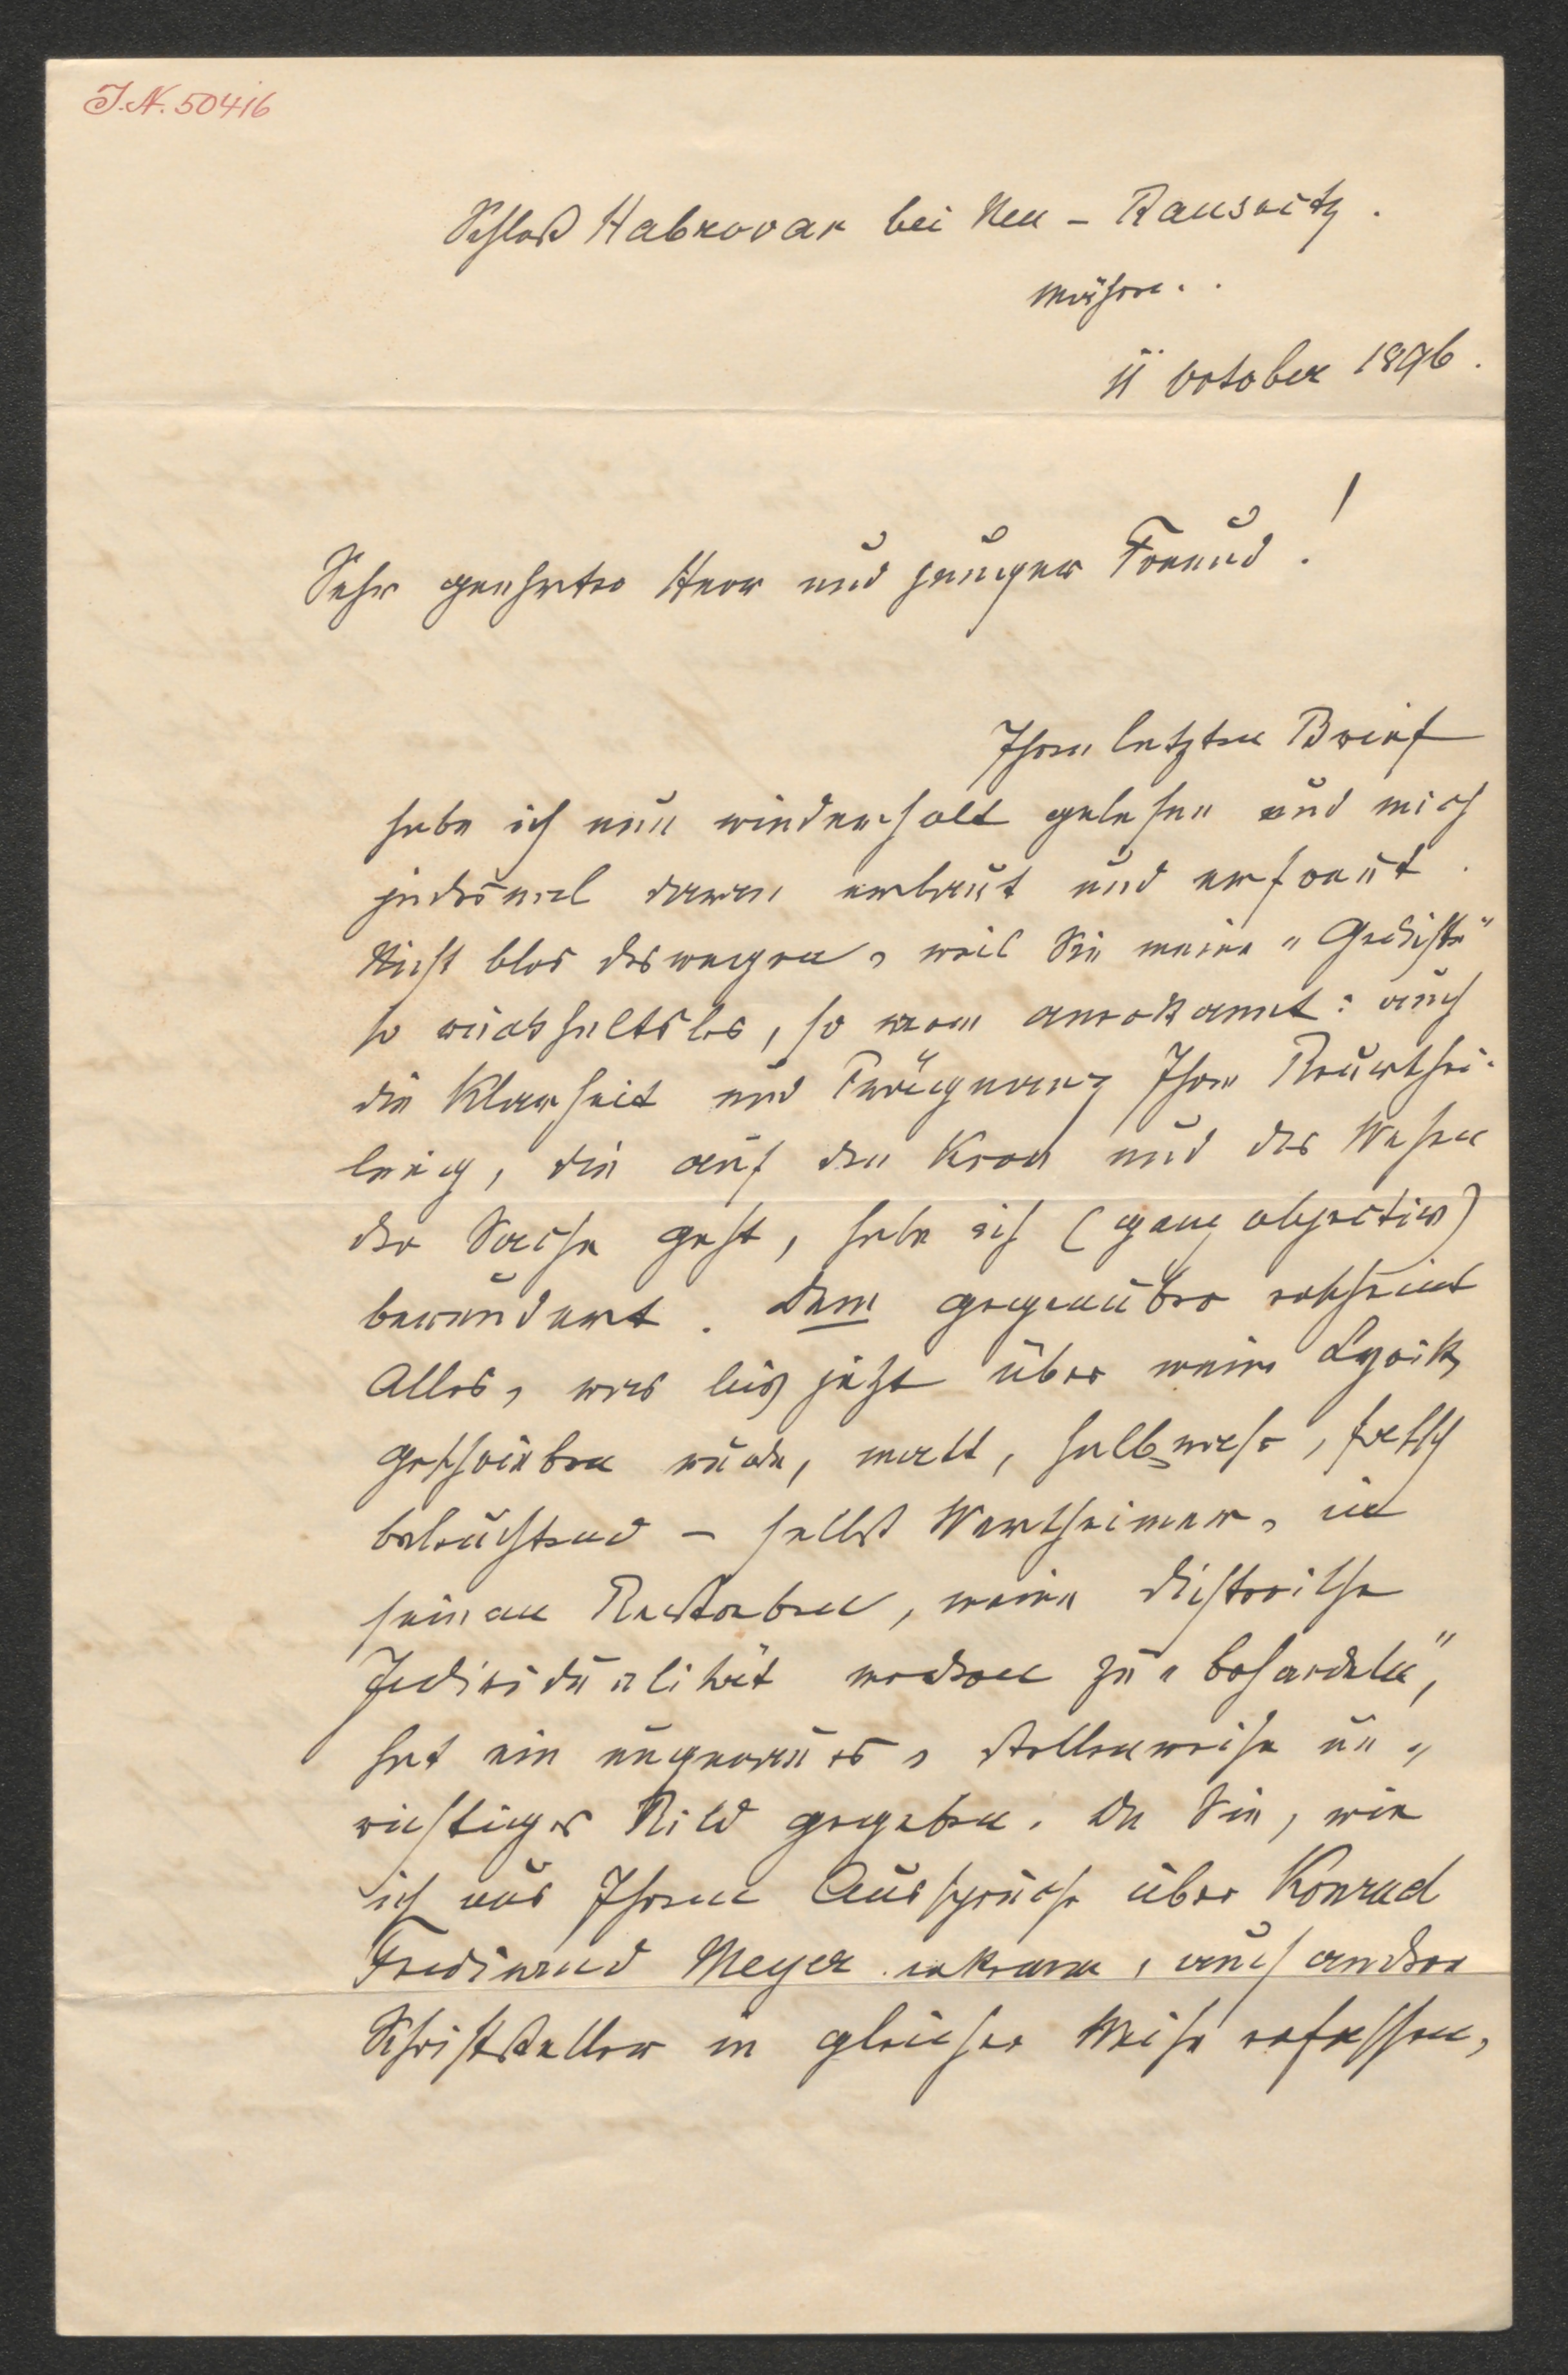 J.N. 50416
Schloß Habrovan bei Neu-Raußnitz.
Mähren.
11 October 1896.
Sehr geehrter Herr und junger Freund!
Ihren letzten Brief
habe ich nun wiederholt gelesen und mich
jedesmal daran erbaut und erfreut.
Nicht blos deswegen, weil Sie meine „Gedichte"
so rückhaltslos, so warm anerkannt: auch
die Klarheit und Prägnanz Ihrer Beurthei-
lung, die auf den Kern und das Wesen
der Sache geht, habe ich (ganz objectiv)
bewundert. Dem gegenüber erscheint
Alles, was bis jetzt über meine Lyrik
geschrieben wurde, matt, halbwahr, falsch
beleuchtend – selbst Wertheimer, in
seinem Bestreben, meine dichterische
Individualität modern zu „behandeln",
hat ein ungenaues, stellenweise un-
richtiges Bild gegeben. Da Sie, wie
ich aus Ihrem Ausspruche über Konrad
Ferdinand Meyer erkenne, auch andere
Schriftsteller in gleicher Weise erfassen,